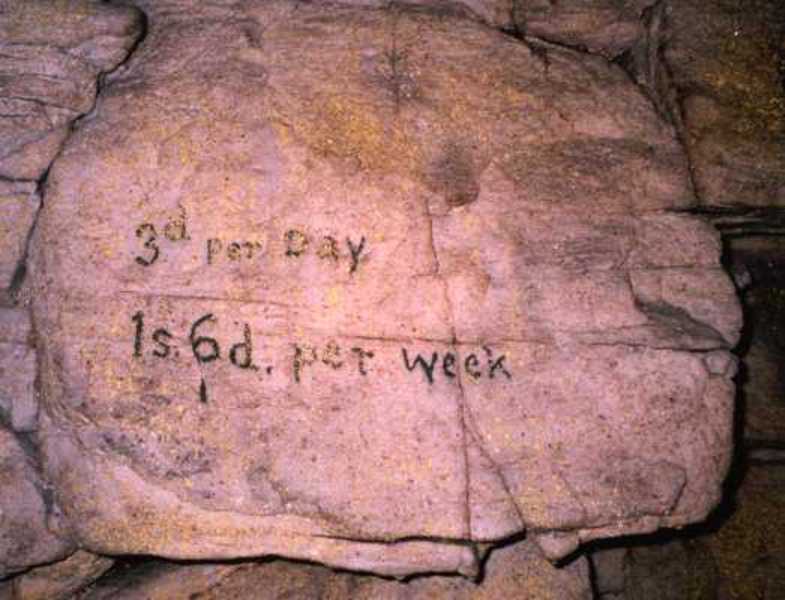 3d per Day
1s. 6d. per week